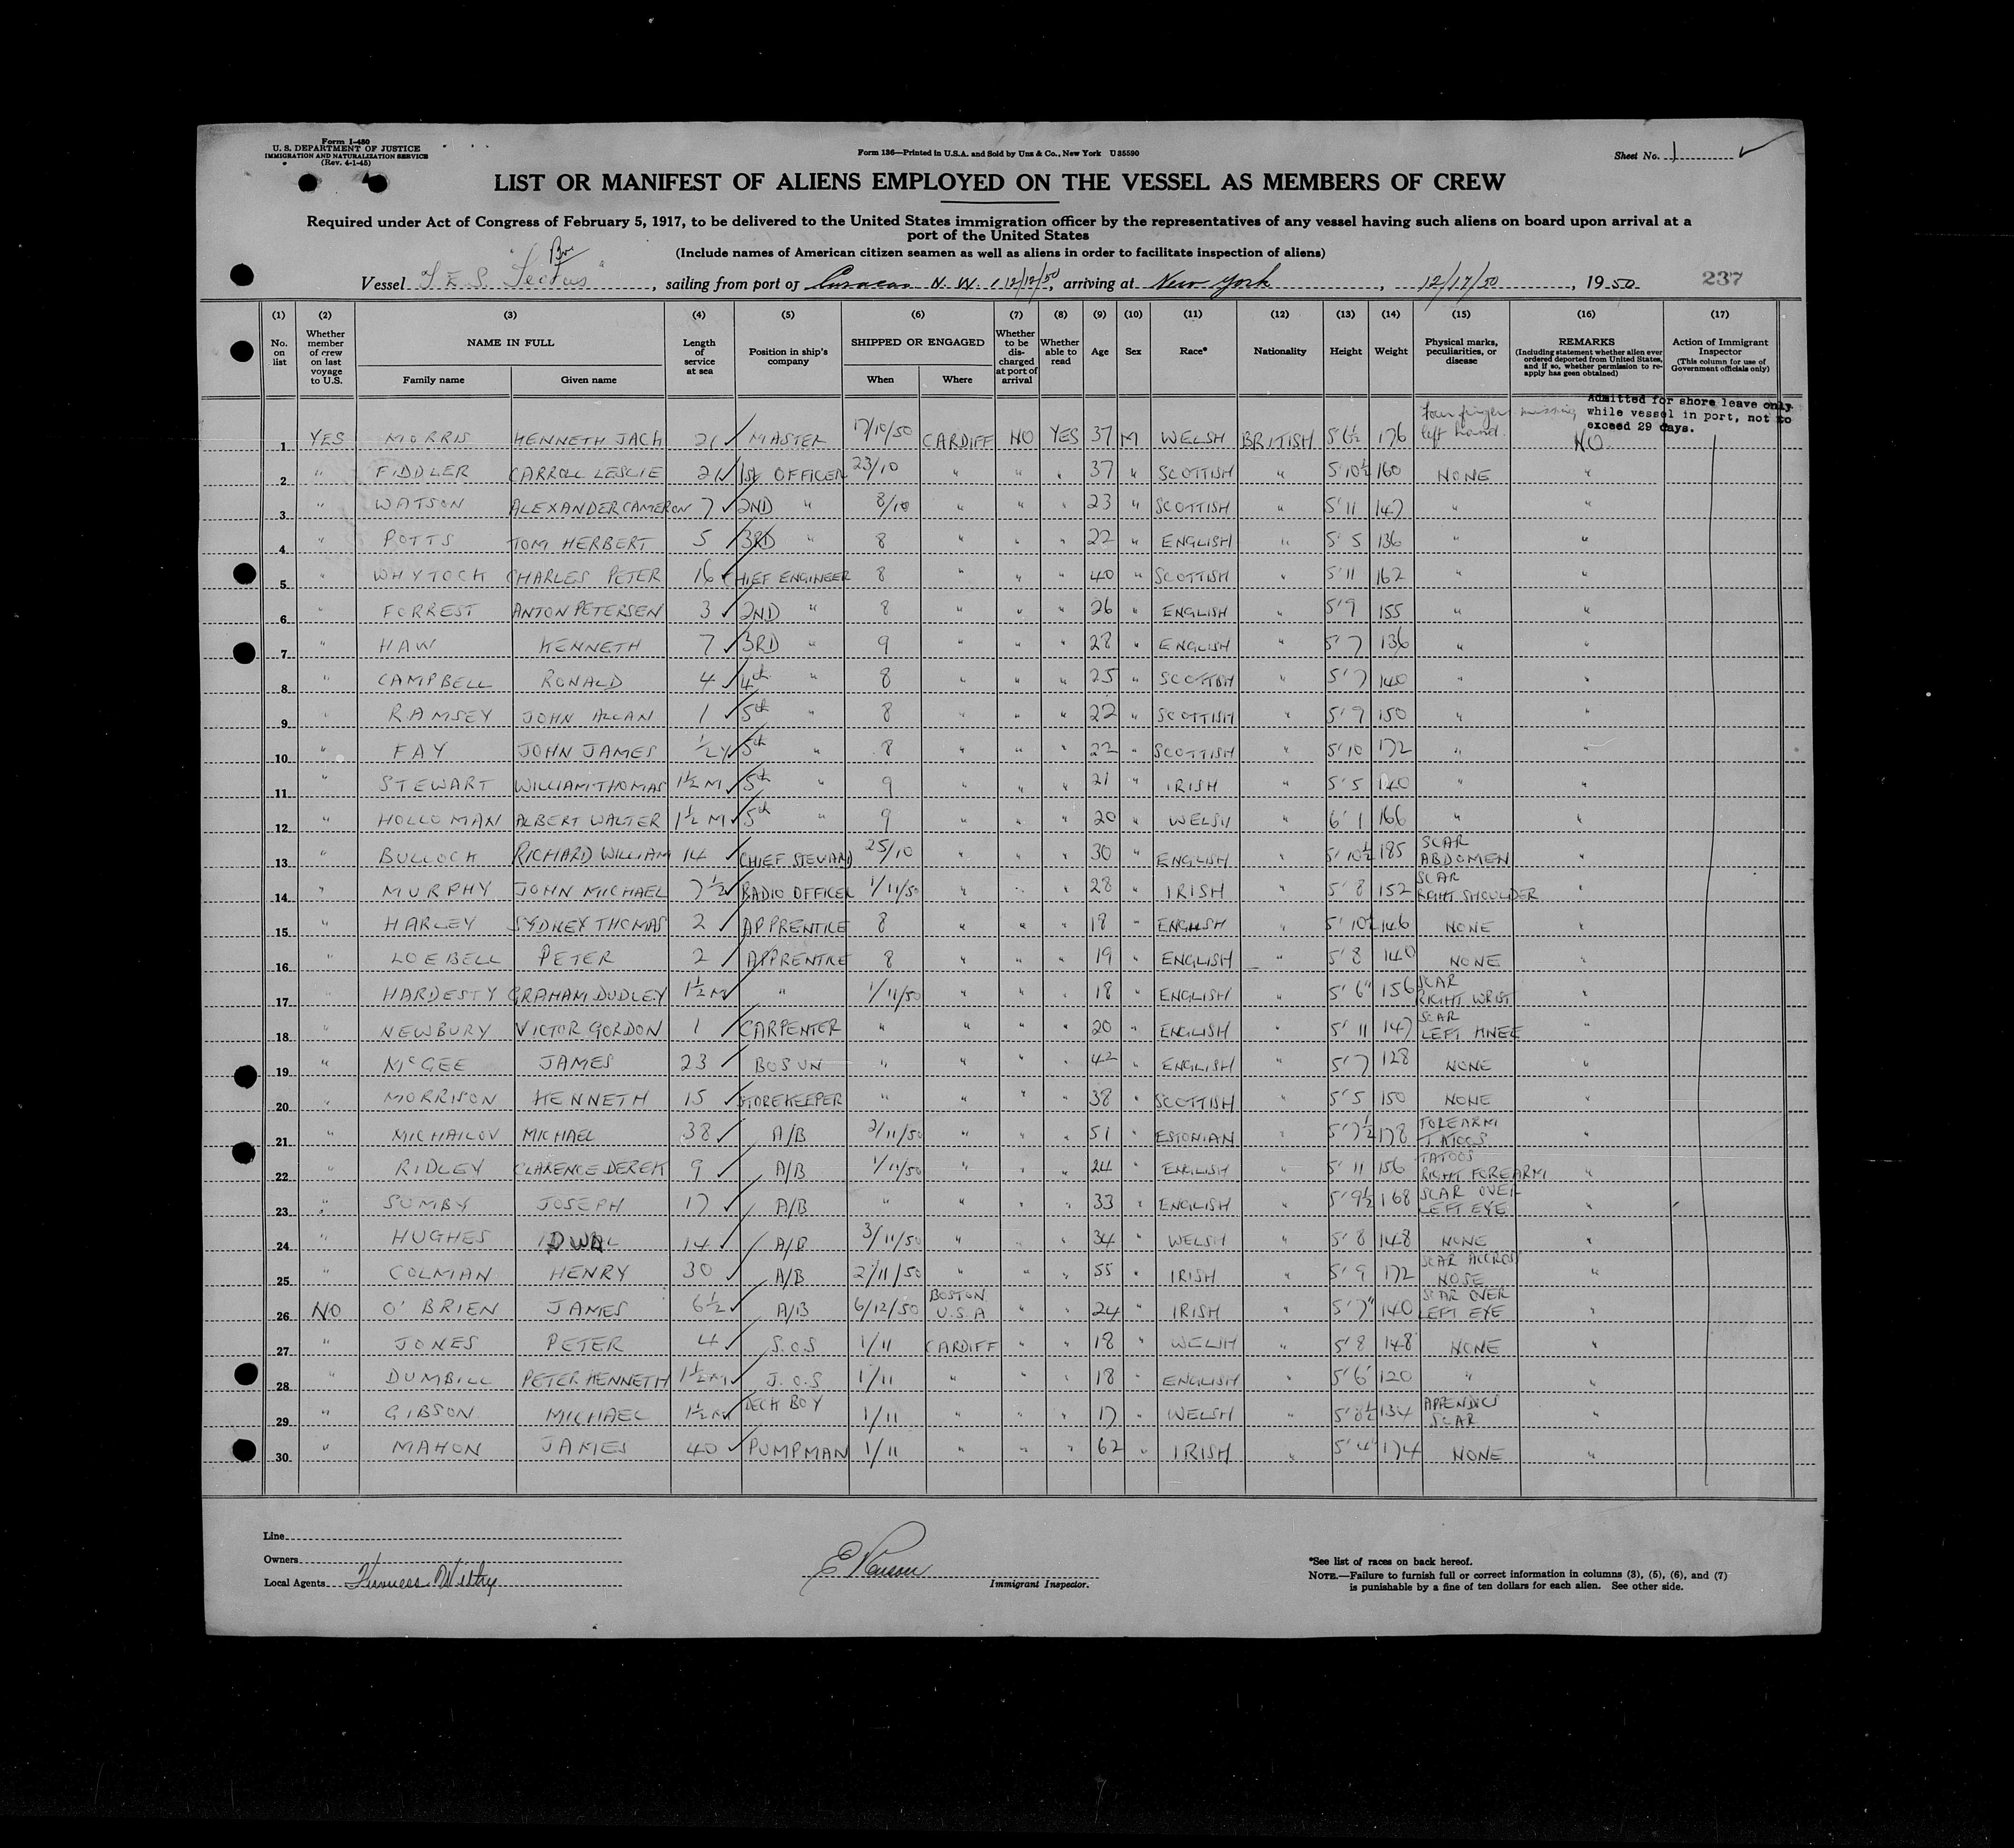 Form I-480
U. S. DEPARTMENT OF JUSTICE
IMMIGRATION AND NATURALIZATION SERVICE
(Rev. 4-1-45)
Form 136—Printed in U.S.A. and Sold by Unz & Co., New York U 35590
Sheet No. 1
LIST OR MANIFEST OF ALIENS EMPLOYED ON THE VESSEL AS MEMBERS OF CREW
Required under Act of Congress of February 5, 1917, to be delivered to the United States immigration officer by the representatives of any vessel having such aliens on board upon arrival at a
port of the United States
(Include names of American citizen seamen as well as aliens in order to facilitate inspection of aliens)
Br
Vessel T.E.S. "Tectus", sailing from port of Curacao N.W.I 12/12/50, arriving at New York, 12/17/50, 1950 237
(1) (2) (3) (4) (5) (6) (7) (8) (9) (10) (11) (12) (13) (14) (15) (16) (17)
No. on list Whether member of crew on last voyage to U.S. NAME IN FULL Family name Given name Length of service at sea Position in ship's company SHIPPED OR ENGAGED When Where Whether to be discharged at port of arrival Whether able to read Age Sex Race* Nationality Height Weight Physical marks, peculiarities, or disease REMARKS (Including statement whether alien ever ordered deported from United States, and if so, whether permission to re-apply has geen obtained) Action of Immigrant Inspector (This column for use of Government officials only)
Admitted for shore leave only while vessel in port, not to exceed 29 days.
1 YES MORRIS KENNETH JACK 21 MASTER 17/10/50 CARDIFF NO YES 37 M WELSH BRITISH 5'6½ 176 four fingers missing left hand. NO
2 " FIDDLER CARROLL LESLIE 21 1st OFFICER 23/10 " " " 37 " SCOTTISH " 5'10½ 160 NONE "
3 " WATSON ALEXANDER CAMERON 7 2ND " 8/10 " " " 23 " SCOTTISH " 5'11 147 " "
4 " POTTS TOM HERBERT 5 3RD " 8 " " " 22 " ENGLISH " 5'5 136 " "
5 " WHYTOCK CHARLES PETER 16 CHIEF ENGINEER 8 " " " 40 " SCOTTISH " 5'11 162 " "
6 " FORREST ANTON PETERSEN 3 2ND " 8 " " " 26 " ENGLISH " 5'9 155 " "
7 " HAW KENNETH 7 3RD " 9 " " " 28 " ENGLISH " 5'7 136 " "
8 " CAMPBELL RONALD 4 4th " 8 " " " 25 " SCOTTISH " 5'7 140 " "
9 " RAMSEY JOHN ALLAN 1 5th " 8 " " " 22 " SCOTTISH " 5'9 150 " "
10 " FAY JOHN JAMES ½ Y 5th " 8 " " " 22 " SCOTTISH " 5'10 172 " "
11 " STEWART WILLIAM THOMAS 1½ M 5th " 9 " " " 21 " IRISH " 5'5 140 " "
12 " HOLLOMAN ALBERT WALTER 1½ M 5th " 9 " " " 20 " WELSH " 6'1 166 " "
13 " BULLOCK RICHARD WILLIAM 14 CHIEF STEWARD 25/10 " " " 30 " ENGLISH " 5'10½ 185 SCAR ABDOMEN "
14 " MURPHY JOHN MICHAEL 7½ RADIO OFFICER 1/11/50 " " " 28 " IRISH " 5'8 152 SCAR RIGHT SHOULDER "
15 " HARLEY SYDNEY THOMAS 2 APPRENTICE 8 " " " 18 " ENGLISH " 5'10½ 146 NONE "
16 " LOEBELL PETER 2 APPRENTICE 8 " " " 19 " ENGLISH " 5'8 140 NONE "
17 " HARDESTY GRAHAM DUDLEY 1½ M " 1/11/50 " " " 18 " ENGLISH " 5'6" 156 SCAR RIGHT WRIST "
18 " NEWBURY VICTOR GORDON 1 CARPENTER " " " " 20 " ENGLISH " 5'11 147 SCAR LEFT KNEE "
19 " McGEE JAMES 23 BOSUN " " " " 42 " ENGLISH " 5'7 128 NONE "
20 " MORRISON KENNETH 15 STOREKEEPER " " " " 38 " SCOTTISH " 5'5 150 NONE "
21 " MICHAILOV MICHAEL 38 A/B 2/11/50 " " " 51 " ESTONIAN " 5'7½ 178 FOREARM TATOOS "
22 " RIDLEY CLARENCE DEREK 9 A/B 1/11/50 " " " 24 " ENGLISH " 5'11 156 TATOOS RIGHT FOREARM "
23 " SUMBY JOSEPH 17 A/B " " " " 33 " ENGLISH " 5'9½ 168 SCAR OVER LEFT EYE "
24 " HUGHES IDWAL 14 A/B 3/11/50 " " " 34 " WELSH " 5'8 148 NONE "
25 " COLMAN HENRY 30 A/B 2/11/50 " " " 55 " IRISH " 5'9 172 SCAR ACCROSS NOSE "
26 NO O'BRIEN JAMES 6½ A/B 6/12/50 BOSTON U.S.A " " 24 " IRISH " 5'7" 140 SCAR OVER LEFT EYE "
27 " JONES PETER 4 S.O.S 1/11 CARDIFF " " 18 " WELSH " 5'8 148 NONE "
28 " DUMBILL PETER KENNETH 1½ M J.O.S 1/11 " " " 18 " ENGLISH " 5'6" 120 " "
29 " GIBSON MICHAEL 1½ M DECK BOY 1/11 " " " 17 " WELSH " 5'8½ 134 APPENDICS SCAR "
30 " MAHON JAMES 40 PUMPMAN 1/11 " " " 62 " IRISH " 5'4" 174 NONE "
Line
Owners
Local Agents Furness Withy
Immigrant Inspector.
*See list of races on back hereof.
NOTE.—Failure to furnish full or correct information in columns (3), (5), (6), and (7)
is punishable by a fine of ten dollars for each alien. See other side.